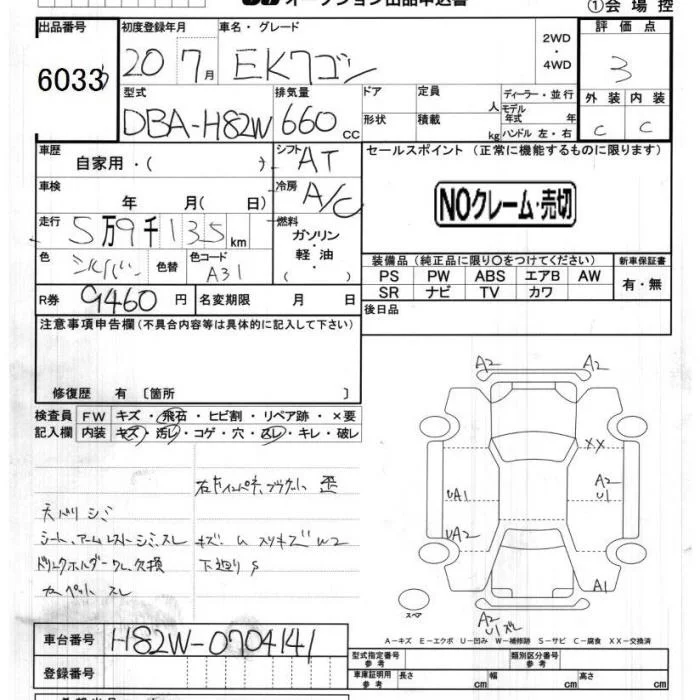 オークション出品申込書
①会場控
出品番号 初度登録年月 車名・グレード 2WD・4WD 評価点
6033 20 7月 EKワゴン 3
型式 排気量 ドア 定員 人 ディーラー・並行 外装 内装
DBA-H82W 660cc 形状 積載 kg モデル年式 年 ハンドル 左・右 C C
車歴 自家用・( ) シフト AT セールスポイント (正常に機能するものに限ります)
車検 年 月( 日) 冷房 A/C NOクレーム・売切
走行 5万9千135km 燃料 ガソリン・軽油・( )
色 シルバー 色替 色コード A31
装備品(純正品に限り〇をつけてください) 新車保証書
PS PW ABS エアB AW 有・無
SR ナビ TV カワ
R券 9460円 名変期限 月 日 後日品
注意事項申告欄(不具合内容等は具体的に記入して下さい)
修復歴 有〔箇所 〕
検査員記入欄 FW キズ・飛石・ヒビ割・リペア跡・×要
内装 キズ・汚レ・コゲ・穴・スレ・キレ・破レ
歪
天バリ シミ
シート、アームレスト シミ、スレ キズ W2
ドリンクホルダー ワレ、欠損 下廻り S
カーペット スレ
A2 A2
XX
UA1 A2 U1
UA2
A1
スペア A2
A-キズ E-エクボ U-凹み W-補修跡 S-サビ C-腐食 XX-交換済
車台番号 H82W-0704141
型式指定番号 参考 類別区分番号 参考
登録番号 車庫証明用 参考 長さ cm 幅 cm 高さ cm